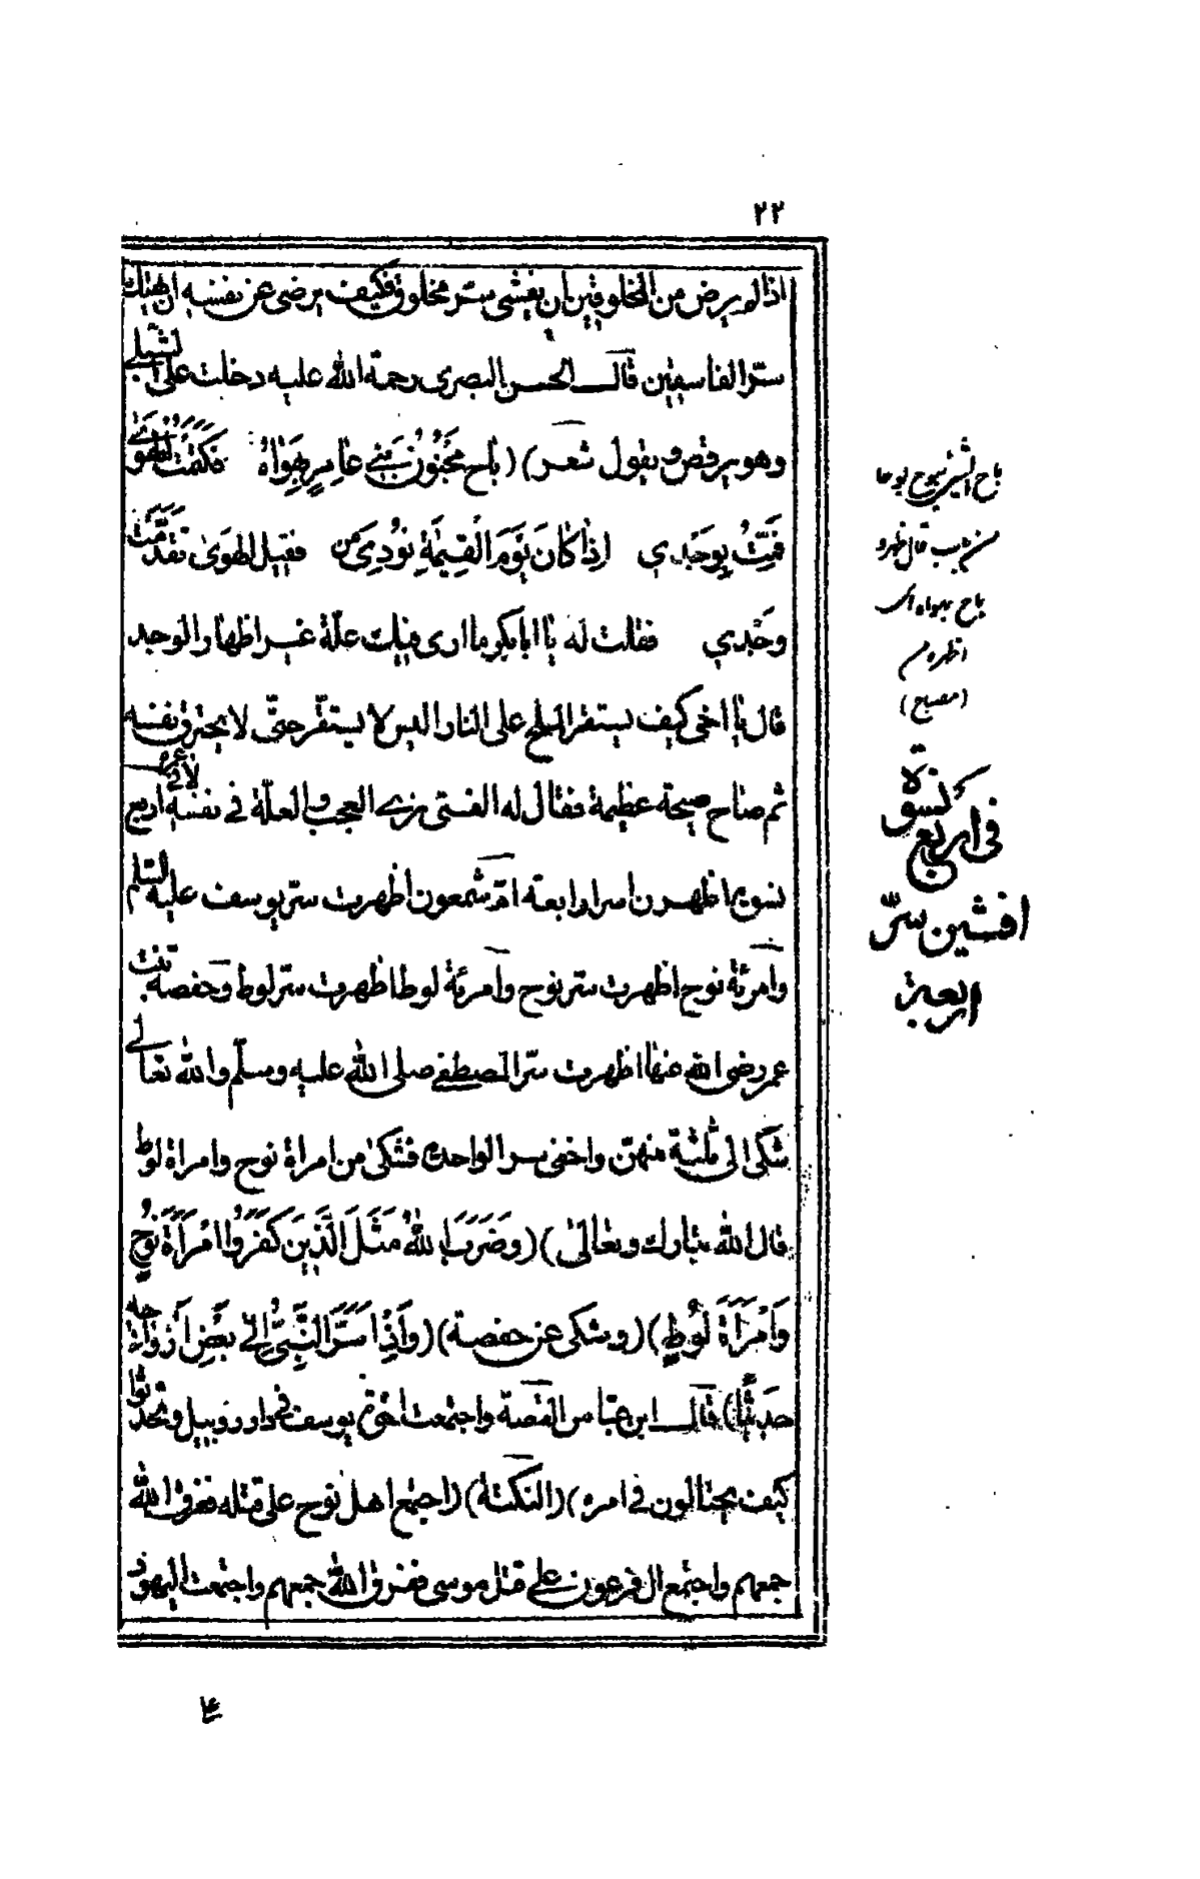 ٢٢
اذا لم يرض من المخلوقين ان يفشى سرّ مخلوق فكيف يرضى عن نفسه ان يهتك
سرّ الفاسقين قال الحسن البصرى رحمة الله عليه دخلت على الشبلى
وهو يرقص ويقول شعر) (باح مَجْنُونُ بَنِي عَامِرٍ بِهَوَاهُ فَكَتَمْتُ الهَوَىٰ
فَمُتُّ بِوَجْدِي اِذَا كَانَ يَوْمَ الْقِيٰمَةِ نُودِىَ مَن قتيل الهَوَىٰ تَقَدَّمْتُ
وَحْدِي فقلت له يا ابا بكر ما ارى فيك علّة غير اظهار الوجد
قال يا اخى كيف يستقر الملح على النار اليس لا يستقرّ حتّى لا يحترق نفسه
ثم صاح صيحة عظيمة فقال له الفتى العجب والعلّة فى نفسه لانّ اربع
نسوة اظهرن اسرار اربعة امّ شمعون اظهرت سرّ يوسف عليه السّلام
وامرئة نوح اظهرت سرّ نوح وامرئة لوط اظهرت سرّ لوط وحفصة بنت
عمر رضى الله عنها اظهرت سرّ المصطفى صلى الله عليه وسلّم والله تعالى
شكى الى ثلثة منهنّ واخفى سر الواحدة فشكىٰ من امراة نوح وامراة لوط
قال الله تبارك وتعالىٰ) (وَضَرَبَ اللهُ مَثَلَ الَّذِينَ كَفَرُوا امْرَاَةَ نُوحٍ
وَامْرَاَةَ لُوطٍ) (وشكى عن حفصة) (وَاِذْ اَسَرَّ النَّبِىُّ اِلىٰ بَعْضِ اَزْوَاجِهِ
حَدِيثًا) قال ابن عبّاس القصة واجتمعت اخوة يوسف فى دار روبيل وتحدّثوا
كيف يحتالون فى امره) (النكتة) (اجتمع اهل نوح على قتله فغرق الله
جمعهم واجتمع ال فرعون على قتل موسى ففرق الله جمعهم واجتمعت اليهود
باح الشئ بوحا
من باب قال ظهر و
باح بهواه اى
اظهره م
(مصباح)
نسوة
فى اربع
افشين سرّ
اربعة